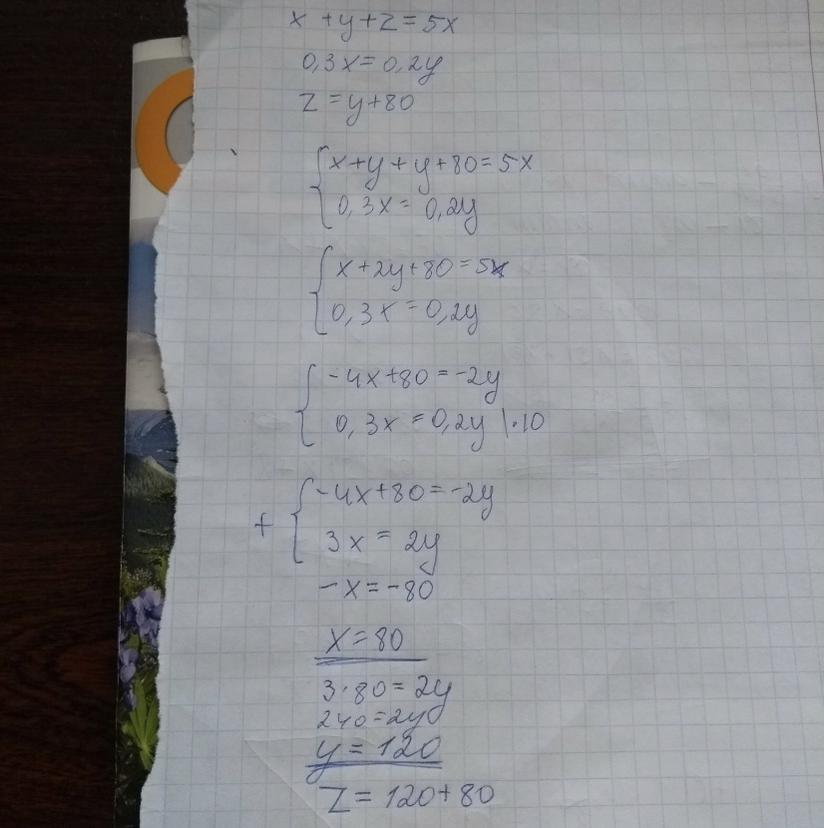 x + y + z = 5x
0,3x = 0,2y
z = y + 80
x + y + y + 80 = 5x
0,3x = 0,2y
x + 2y + 80 = 5x
0,3x = 0,2y
-4x + 80 = -2y
0,3x = 0,2y |·10
+ { -4x + 80 = -2y
3x = 2y
-x = -80
x = 80
3·80 = 2y
240 = 2y
y = 120
z = 120 + 80